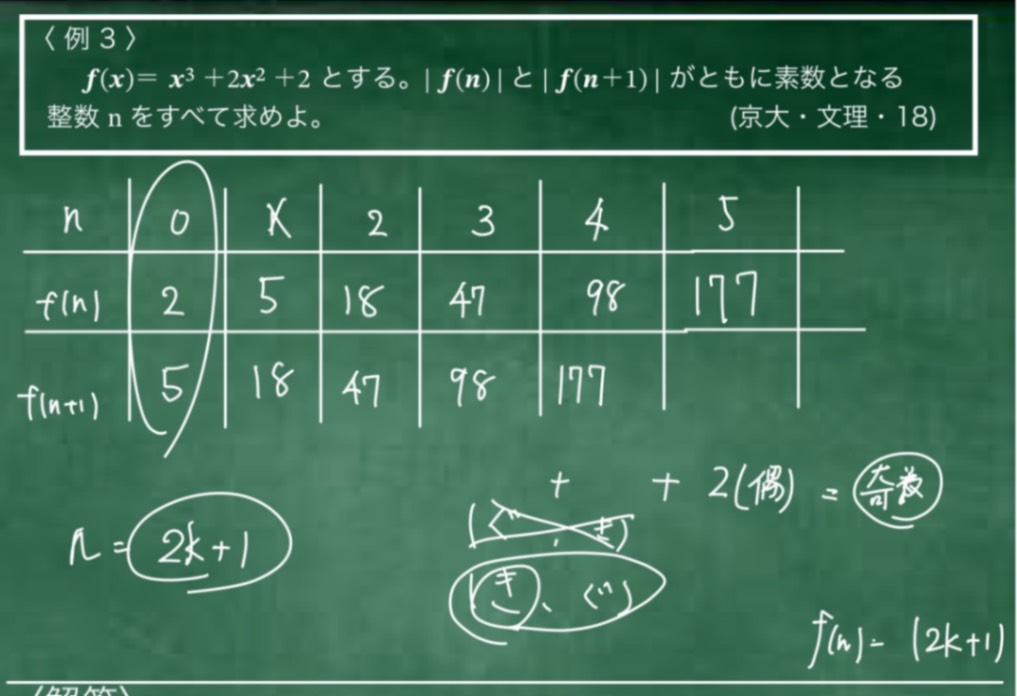 〈例3〉
f(x)= x³ +2x² +2 とする。| f(n) | と | f(n+1) | がともに素数となる
整数 n をすべて求めよ。 (京大・文理・18)
n 0 1 2 3 4 5
f(n) 2 5 18 47 98 177
f(n+1) 5 18 47 98 177
+ + 2(偶) = 奇数
(ぐ , き)
n = 2k+1
(き、ぐ)
f(n) = (2k+1)
〈解答〉